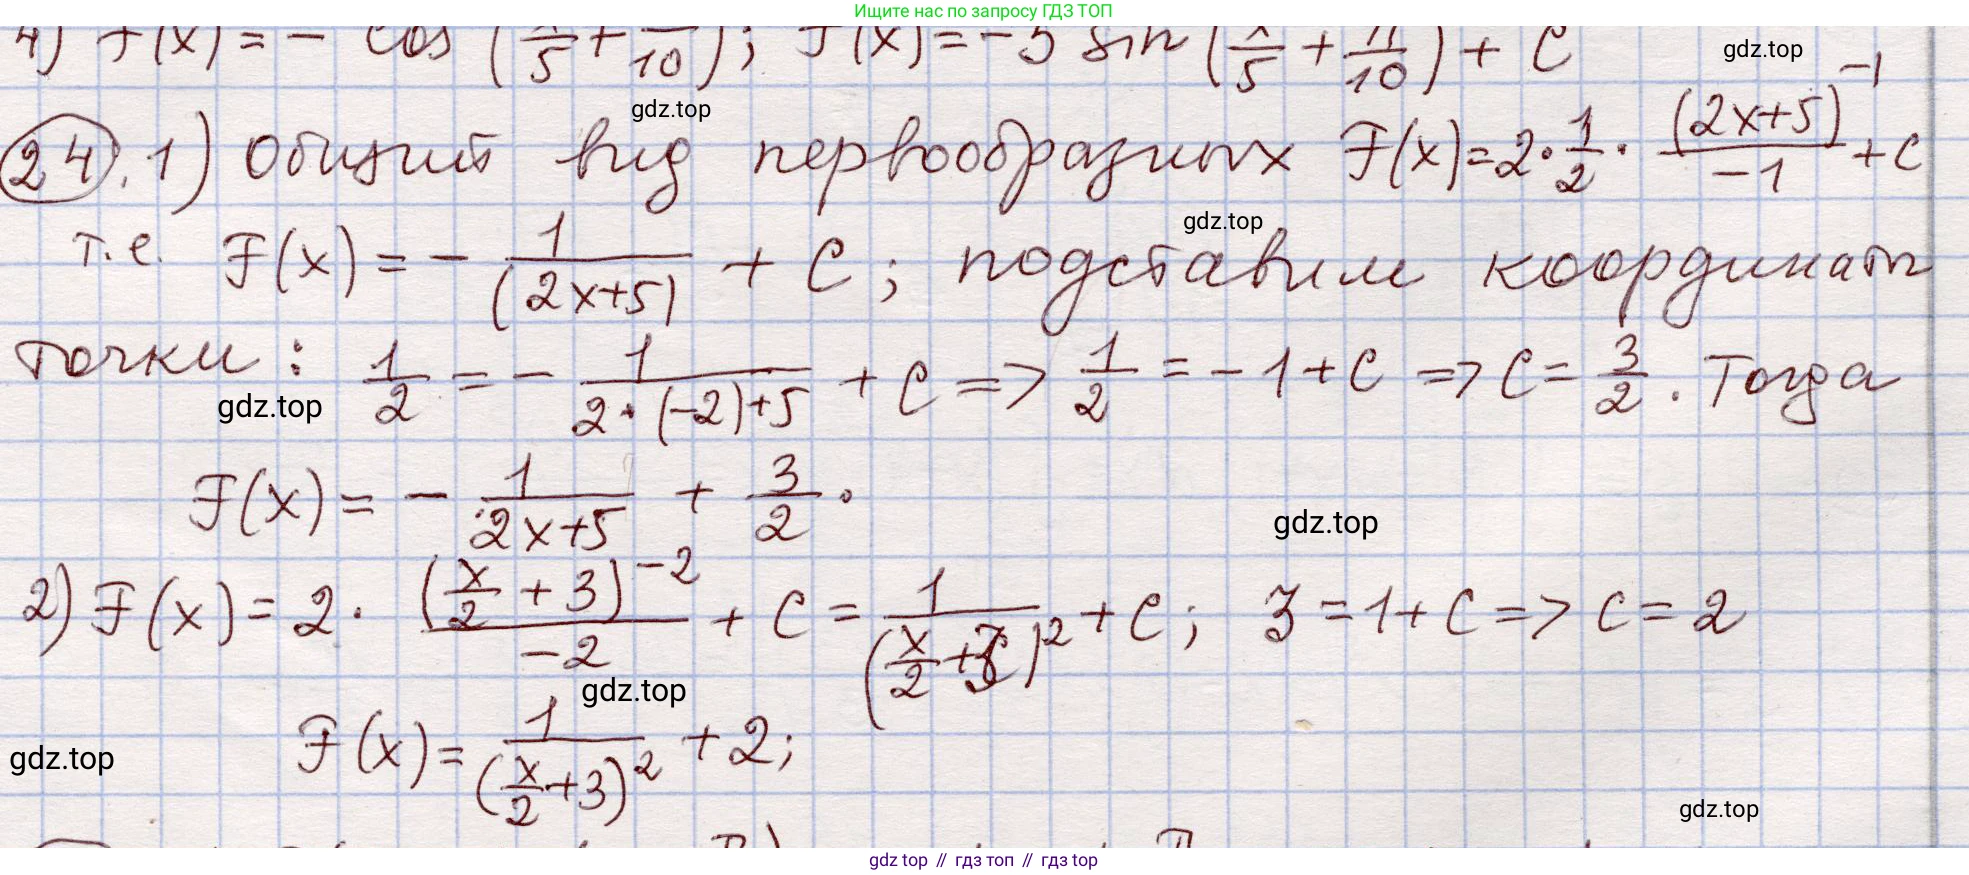 Ищите нас по запросу ГДЗ ТОП
4) f(x) = - cos (x/5 + π/10); F(x) = -5 sin (x/5 + π/10) + C
gdz.top
gdz.top
24. 1) Общий вид первообразных F(x) = 2 · 1/2 · (2x+5)^-1/-1 + C
gdz.top
т.е. F(x) = - 1/(2x+5) + C; подставим координаты
точки: 1/2 = - 1/(2·(-2)+5) + C => 1/2 = -1 + C => C = 3/2. Тогда
gdz.top
F(x) = - 1/(2x+5) + 3/2.
gdz.top
2) F(x) = 2 · (x/2 + 3)^-2/-2 + C = 1/(x/2 + 3)^2 + C; 3 = 1 + C => C = 2
gdz.top
F(x) = 1/(x/2 + 3)^2 + 2;
gdz.top
gdz.top
gdz top // гдз топ // гдз top